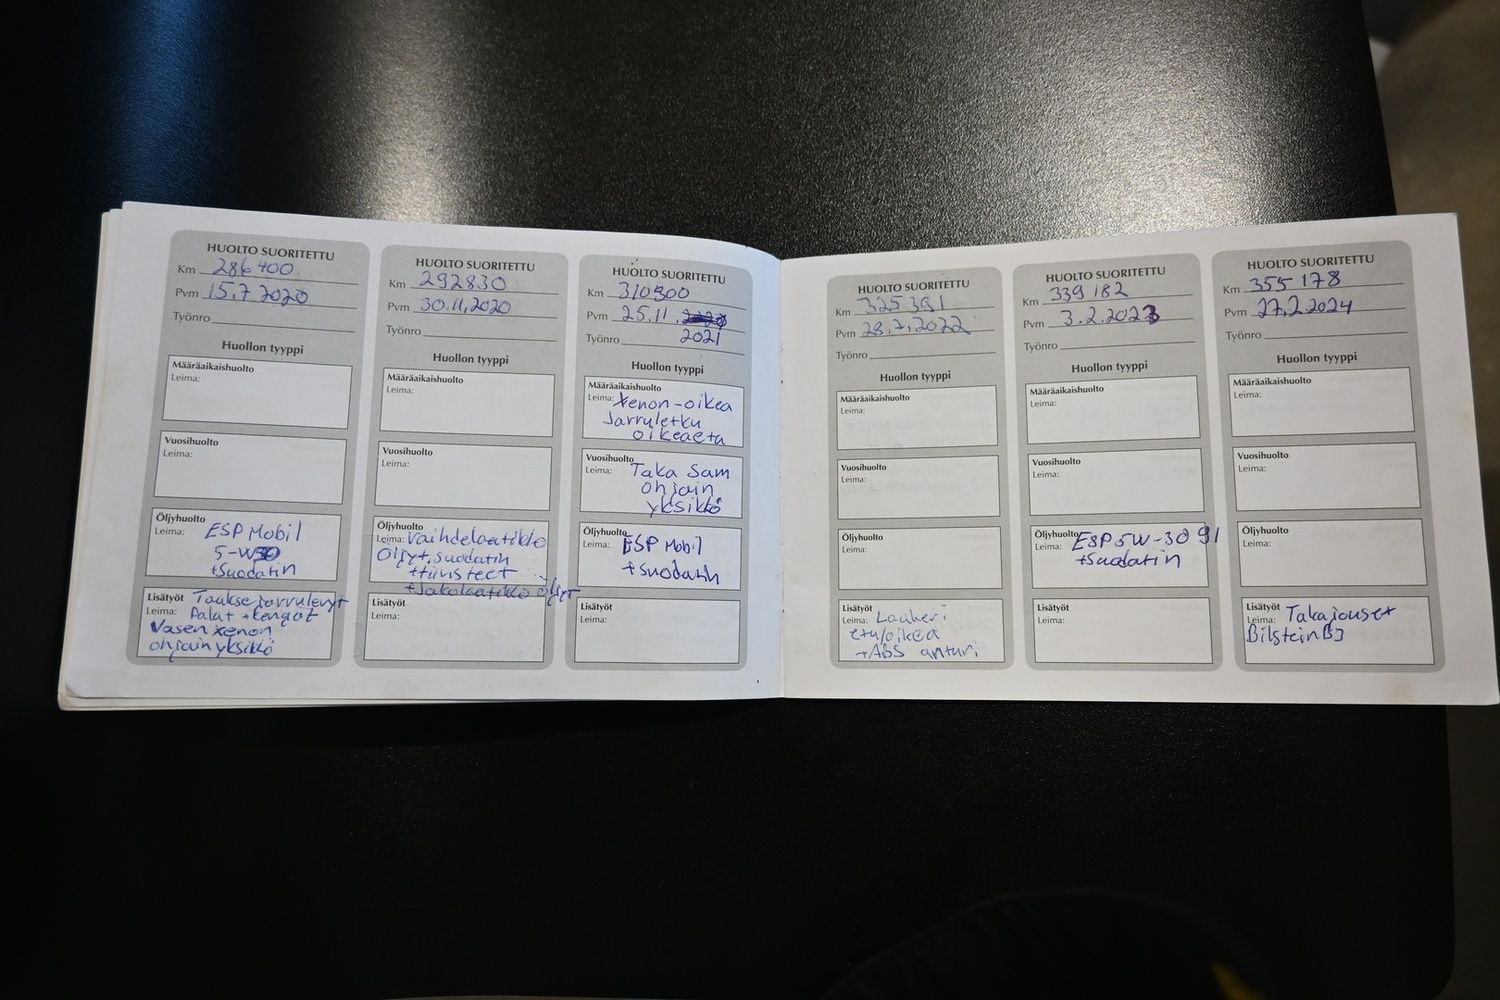 HUOLTO SUORITETTU
Km 286400
Pvm 15.7 2020
Työnro
Huollon tyyppi
Määräaikaishuolto
Leima:
Vuosihuolto
Leima:
Öljyhuolto
Leima: ESP Mobil
5-W30
+Suodatin
Lisätyöt Taakse jarrulevyt
Leima: Palat + kengät
Vasen xenon
ohjainyksikkö
HUOLTO SUORITETTU
Km 292830
Pvm 30.11.2020
Työnro
Huollon tyyppi
Määräaikaishuolto
Leima:
Vuosihuolto
Leima:
Öljyhuolto
Leima: Vaihdelaatikko
Öljyt, suodatin
+tiivisteet
+Jakolaatikko öljyt
Lisätyöt
Leima:
HUOLTO SUORITETTU
Km 310300
Pvm 25.11.
Työnro 2021
Huollon tyyppi
Määräaikaishuolto
Leima: Xenon-oikea
Jarruletku
oikeaeta
Vuosihuolto
Leima: Taka Sam
ohjain
yksikkö
Öljyhuolto
Leima: ESP Mobil
+suodatin
Lisätyöt
Leima:
HUOLTO SUORITETTU
Km 325391
Pvm 28.7.2022
Työnro
Huollon tyyppi
Määräaikaishuolto
Leima:
Vuosihuolto
Leima:
Öljyhuolto
Leima:
Lisätyöt
Leima: Laakeri
etu/oikea
+ABS anturi
HUOLTO SUORITETTU
Km 339182
Pvm 3.2.2023
Työnro
Huollon tyyppi
Määräaikaishuolto
Leima:
Vuosihuolto
Leima:
Öljyhuolto
Leima: ESP 5W-30 9l
+suodatin
Lisätyöt
Leima:
HUOLTO SUORITETTU
Km 355178
Pvm 27.2.2024
Työnro
Huollon tyyppi
Määräaikaishuolto
Leima:
Vuosihuolto
Leima:
Öljyhuolto
Leima:
Lisätyöt Takajouset
Leima: Bilstein B3